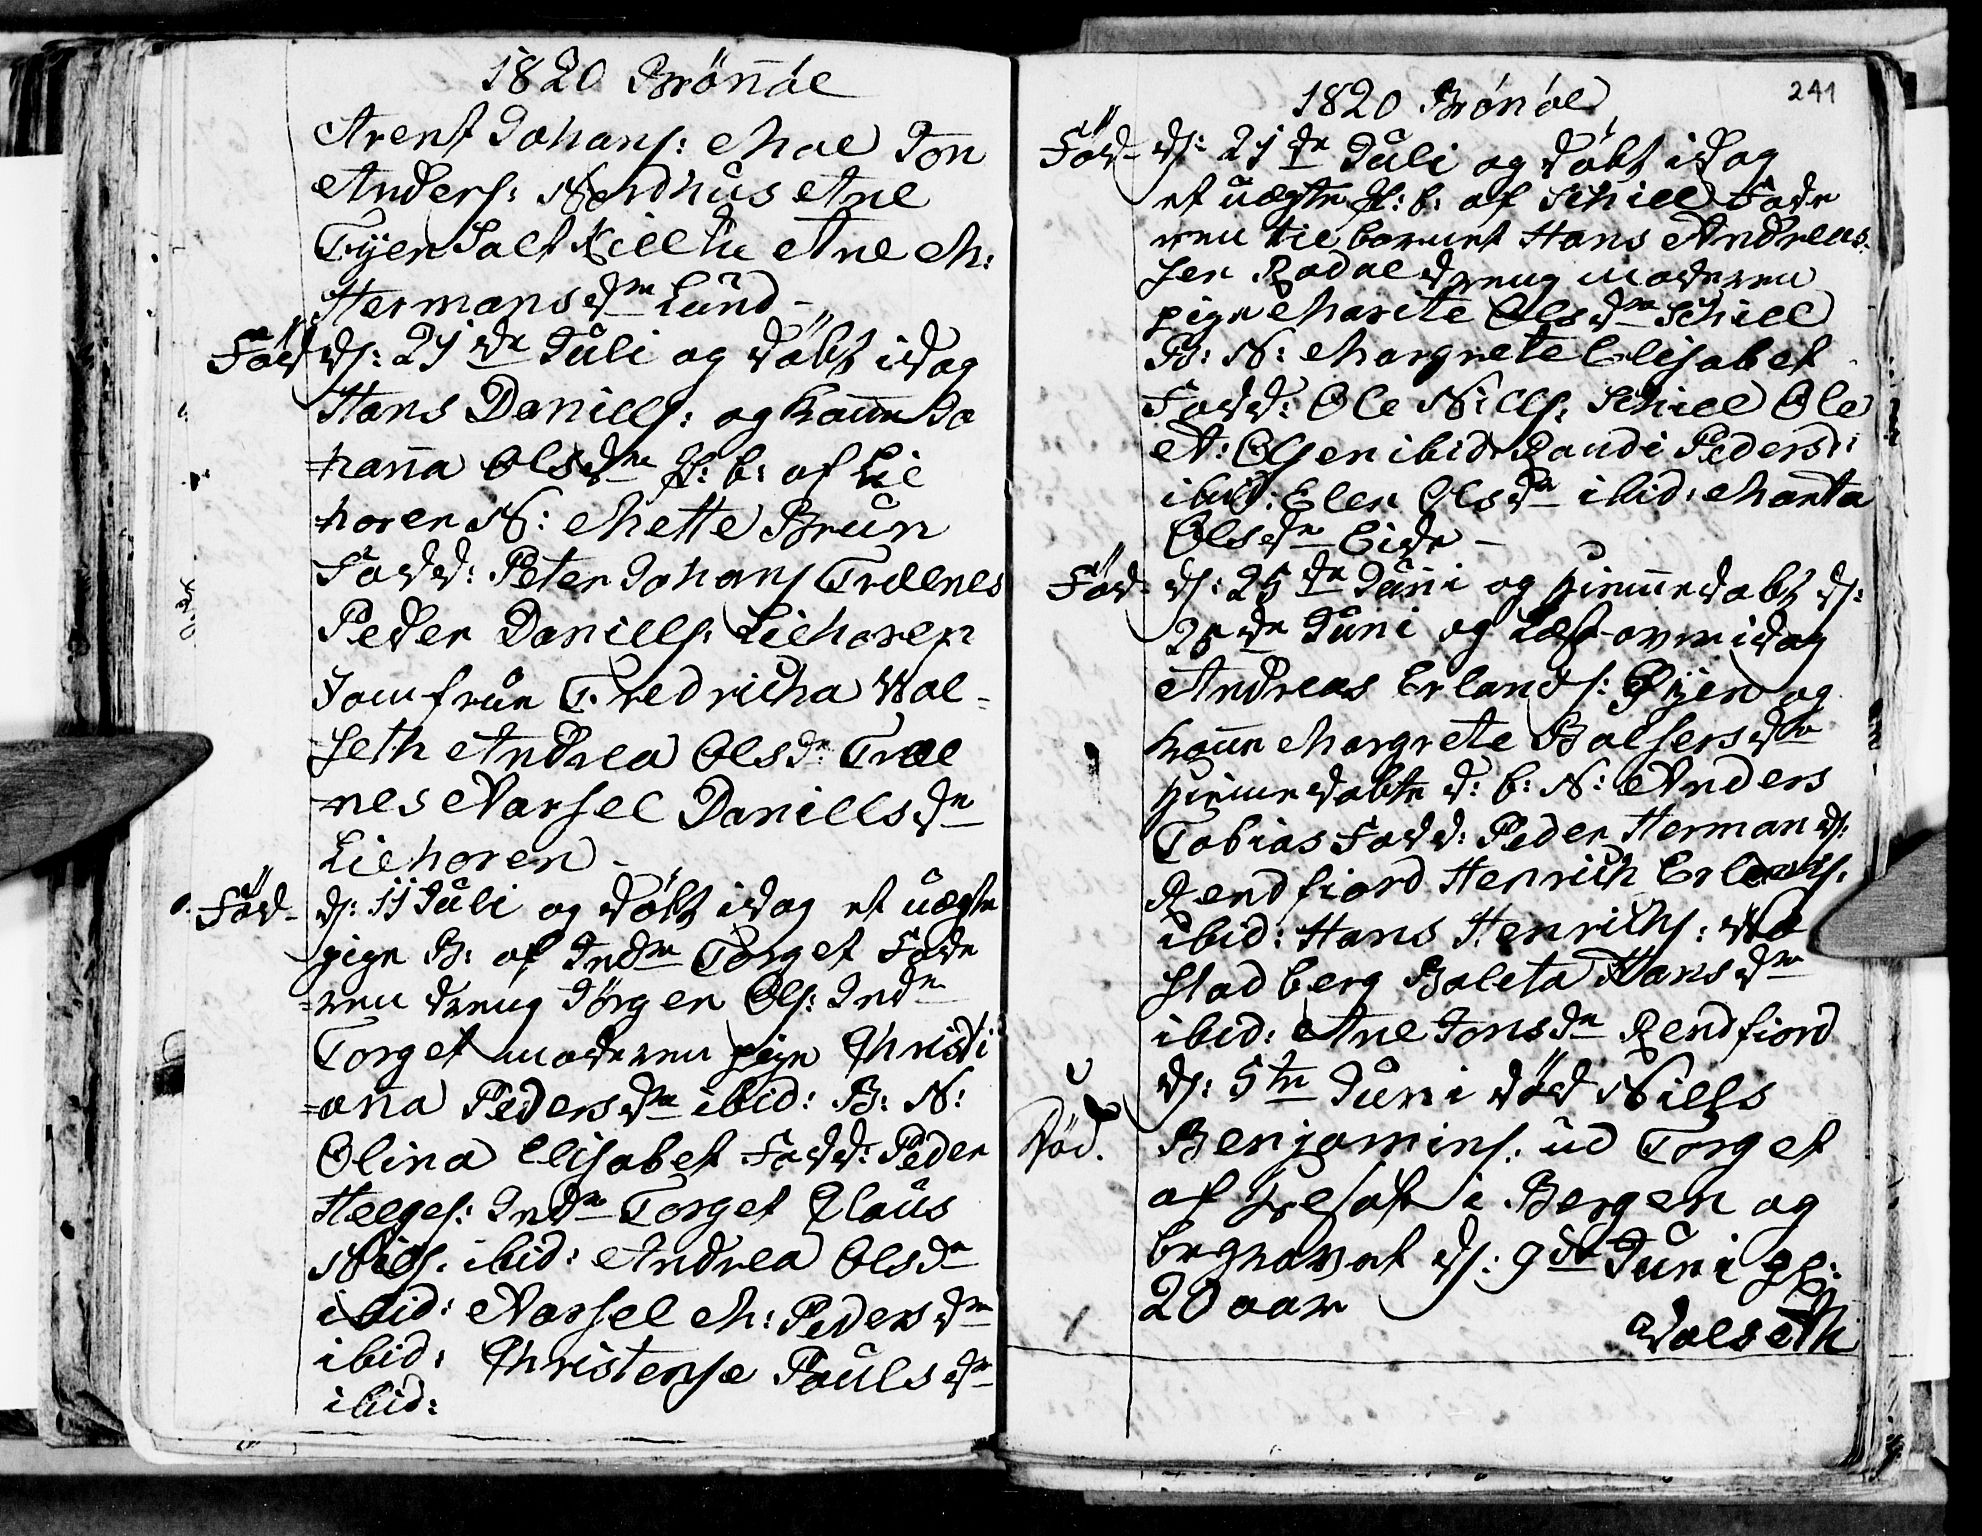 1820 Brönöe
Arent Johans: Moe Jon
Anders: Nordhus Ane
Tjen Salt Ane M:
Hermansdr Lund -
Föd d: 21de Juli og döbt idag
Hans Daniels: og Kone Jo
=hanna Olsdr P: b: af Lil
horen N: Mette Brun
Fadd: Peter Johans Trælnes
Peder Daniels: Lilhoren
Jomfrue Fredricha Wol-
seth Andrea Olsd: Træl
nes Marsel Danielsdr
Lilhoren -
Föd d: 11 Juli og döbt idag et uægte
pige B: af Indr Torget Fade
=ren dreng Jörgen Ols: Indr
Torget moderen pige Christi
=ana Pedersdr ibid: B: N:
Olina Elisabet Fadd: Peder
Helges: Indr Torget Claus
Niels: ibid: Andrea Olsdr
ibid: Marsel M: Pedersdr
ibid: Christense Paulsdr
ibid:
241
1820 Brönöe
Föd d: 21de Juli og döbt idag
et uægte P: b: af Schiell Fade
ren til barnet Hans Andreas
sen Rodal dreng moderen
pige Marite Olsdr Schiell
B: N: Margrete Elisabet
Fadd: Ole Niels: Schiell Ole
A: Olsen ibid Randi Peders:
ibid: Elen Olsdr ibid: Marta
Olsdr Eide -
Föd d: 25de Juni og hiemmedöbt d:
28de Juni og Læst over idag
Andreas Erlands: Öyen og
Kone Margrete Balsersdr
hiemmedöbte d: b: N: Anders
Tobias Fadd: Peder Hermands:
Rendfiord Henrich Erlands:
ibid: Hans Henrichs:
stadberg Baleta Hansdr
ibid: Ane Jonsdr Rendfiord
d: 5te Juni död Niells
Död. Benjamins: ud Torget
af i Bergen og
begravet d: 9de Juni gl:
20 aar
Wolseth